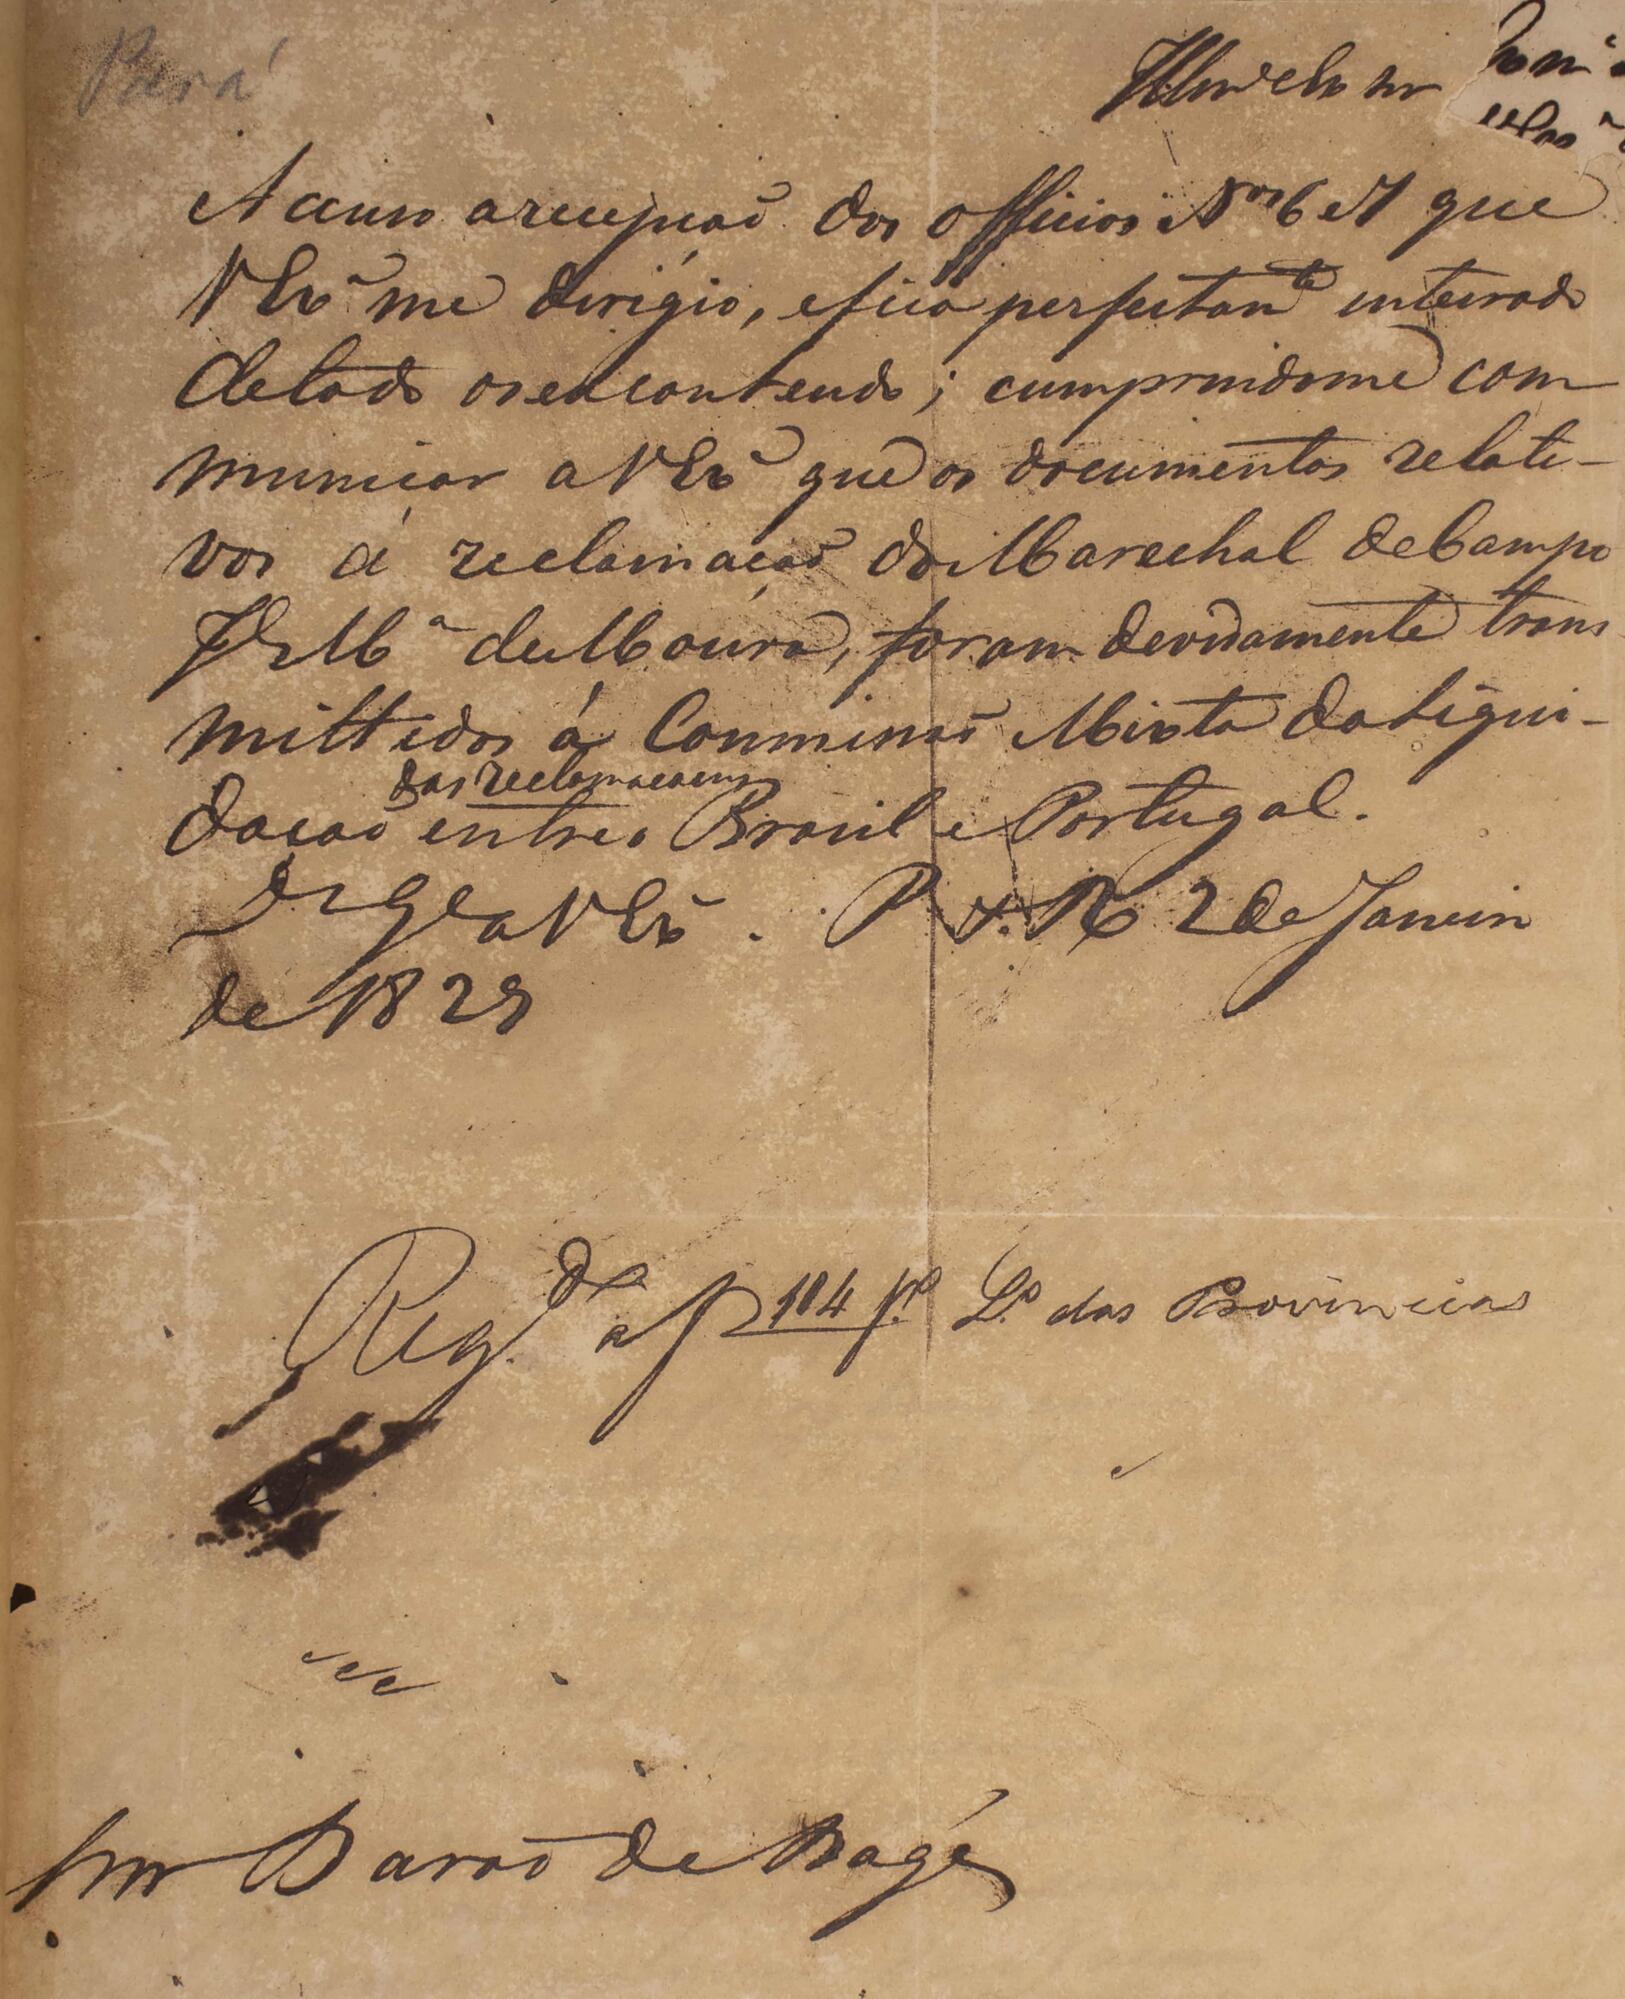 Pará
Illmo e Exmo Snr
Accuso a recepçaõ dos officios Nos 6 e 7 que
V Exa me dirigio, e fico perfeitamte inteirado
de todo o seu contendo; cumprindome com
municar a V Exa que os documentos relati-
vos á reclamaçaõ do Marechal de Campo
Je Ma de Moura, foram devidamente trans
mittidos á Commissaõ Mixta da liqui-
daçaõ das reclamaçoens entre o Brasil e Portugal.
Ds Ge a V Exa. P. R 2 de Janeiro
de 1829
Regda a f 184 L.o das Provincias
Snr Baraõ de Bagé